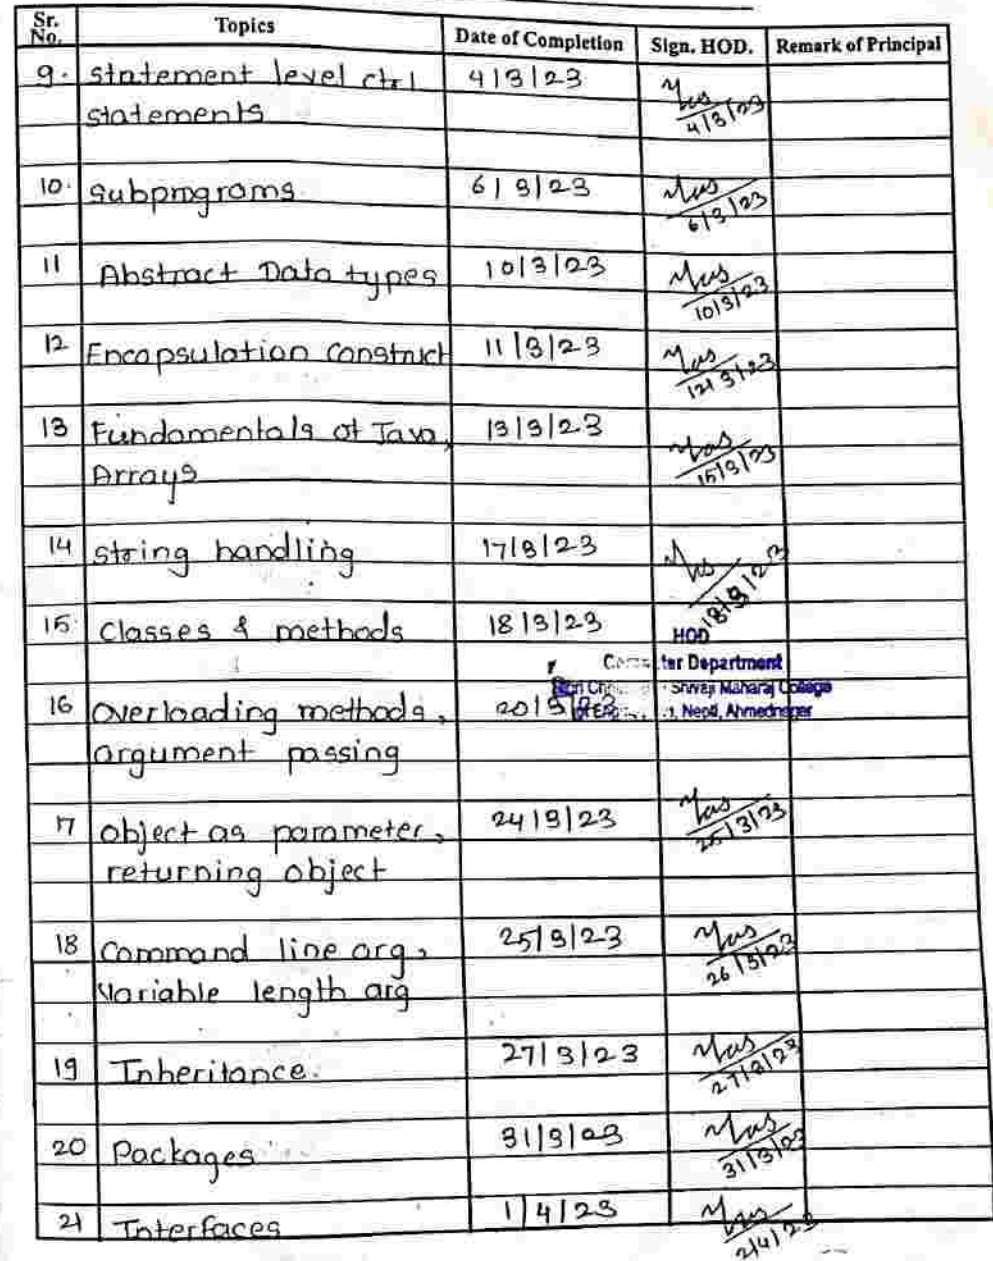 Sr. No. Topics Date of Completion Sign. HOD. Remark of Principal
9. statement level ctrl 4/3/23
statements 4/3/23
10. Subprograms. 6/3/23 6/3/23
11 Abstract Data types 10/3/23 10/3/23
12 Encapsulation construct 11/3/23 12/3/23
13 Fundamentals of Java, 13/3/23
Arrays 15/3/23
14 string handling 17/3/23 18/3/23
15. Classes & methods 18/3/23
HOD
Department
Shivaji Maharaj College
Nepti, Ahmednagar
16 Overloading methods, 20/3/23
argument passing
17 object as parameter, 24/3/23 25/3/23
returning object
18 Command line arg, 25/3/23 26/3/23
Variable length arg
19 Inheritance. 27/3/23 27/3/23
20 Packages 31/3/23 31/3/23
21 Interfaces 1/4/23 2/4/23